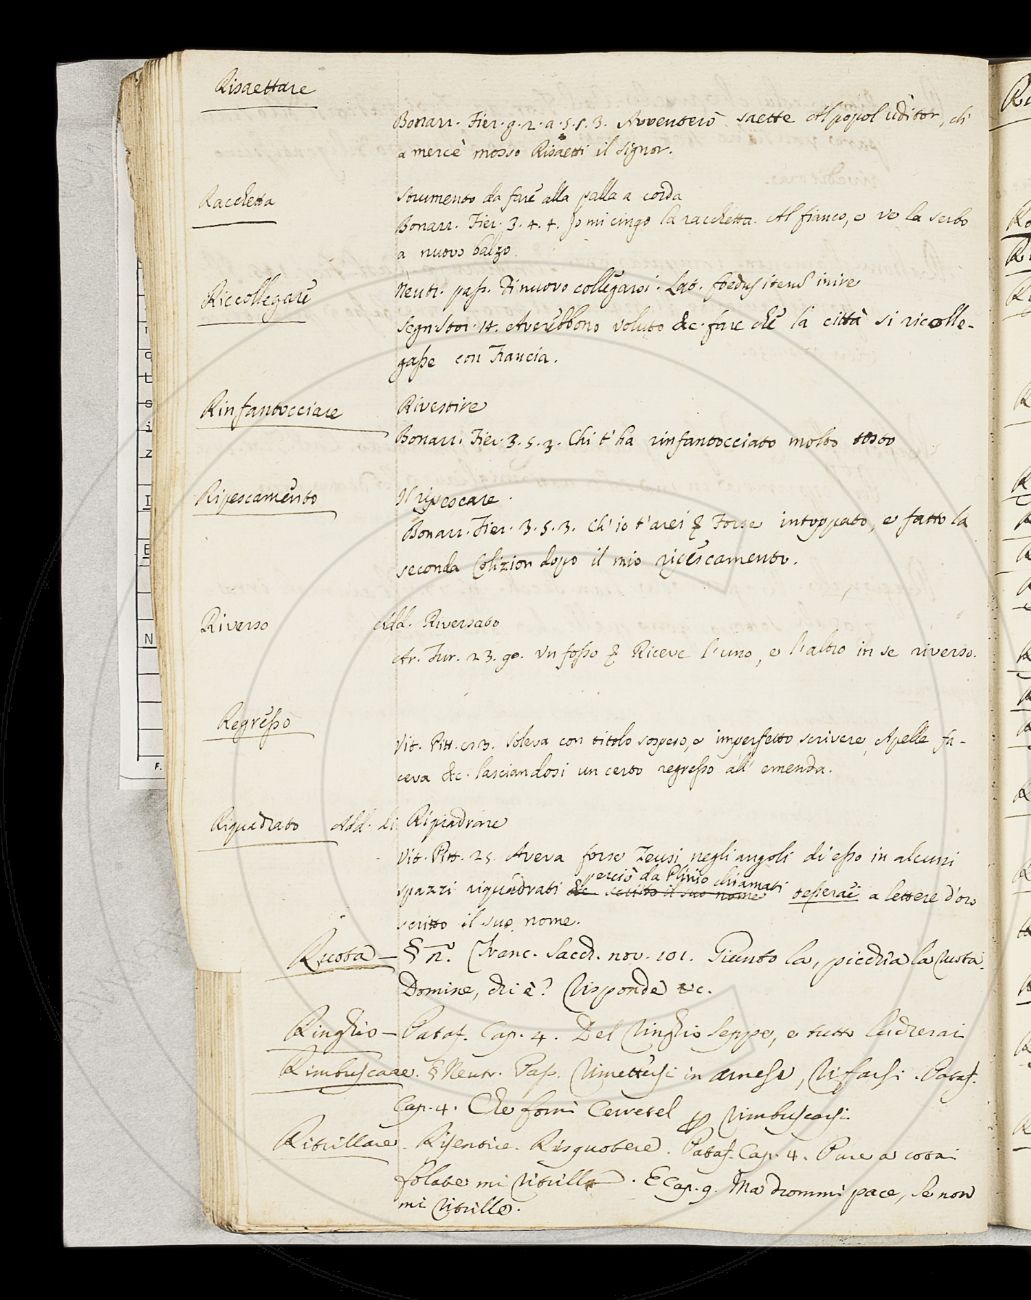 Risaettare
Bonarr. Fier. g. 2. a. 5. s. 3. Avventerò saette Al popol uditor, chi
a mercè mosso Risaetti il signor.
Racchetta   strumento da fare alla palla a corda
Bonarr. Fier. 3. 4. 4. Jo mi cingo la racchetta Al fianco, e ve la serbo
a nuovo balzo.
Riccollegare   Neutr. pass. Di nuovo collegarsi. Lat. foedus iterum inire
Segn. Stor. 14. Averebbono voluto &c. fare che la città si ricolle-
gasse con Francia.
Rinfantocciare   Rivestire
Bonarr. Fier. 3. 5. 3. Chi t'ha rinfantocciato molto tosto
Ripescamento   Il ripescare.
Bonarr. Fier. 3. 5. 3. Ch' io t'arei & Forse intoppato, e fatto la
seconda Colizion dopo il mio ripescamento.
Riverso   Add. Riversato
Ar. Fur. 23. 90. Un fosso & Riceve l'uno, e l'altro in se riverso.
Regresso
Vit. Pitt. 123. Soleva con titolo sospeso, e imperfetto scrivere, Apelle fa-
ceva &c. lasciandosi un certo regresso all' emenda.
Riquadrato   Add. di Riquadrare
Vit. Pitt. 25. Aveva forse Zeusi negli angoli di esso in alcuni
perciò da Plinio chiamati
spazzi riquadrati &c. scritto il suo nome tesserati a lettere d'oro
scritto il suo nome.
Ruota — § n.° Franc. Sacch. nov. 101. Giunto la, picchia la ruota.
Domine, chi è? risponde &c.
Ringhio — Pataf. Cap. 4. Del ringhio seppe, e tutto
Rimbuscare. § Neutr. Pass. Rimettersi in arnese, rifarsi. Pataf.
Cap. 4. Che forni rimbuscarsi.
Ritrillare. Risentire. Risquotere. Pataf. Cap. 4. Pure a cotai
folate mi ritrilla. E Cap. 9. Ma drommi pace, se non
mi ritrillo.